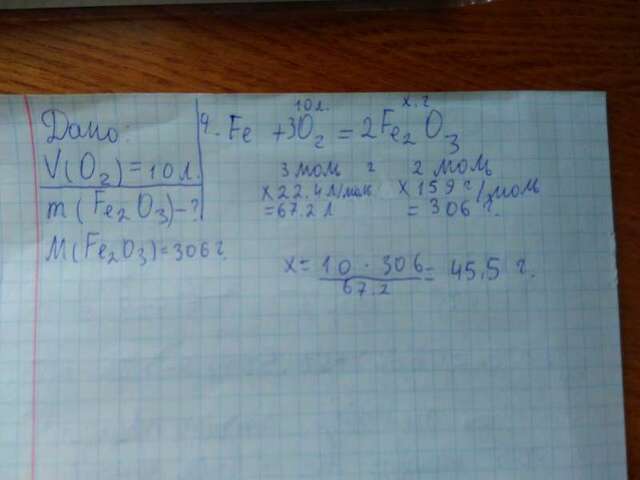 Дано:
V(O₂)=10л.
m(Fe₂O₃)-?
M(Fe₂O₃)=306г.
10л. х.г
4.Fe +3O₂=2Fe₂O₃
3 моль 2 моль
х22.4л/моль х159г/моль
=67.2л =306г.
х=10·306/67.2=45,5 г.